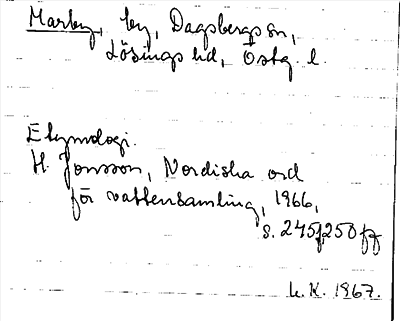 Marby, by, Dagsbergs sn,
Lösings hd, Östg. l.
Etymologi.
H. Jonsson, Nordiska ord
för vattensamling, 1966,
s. 245f, 250 ff
L.K. 1967.